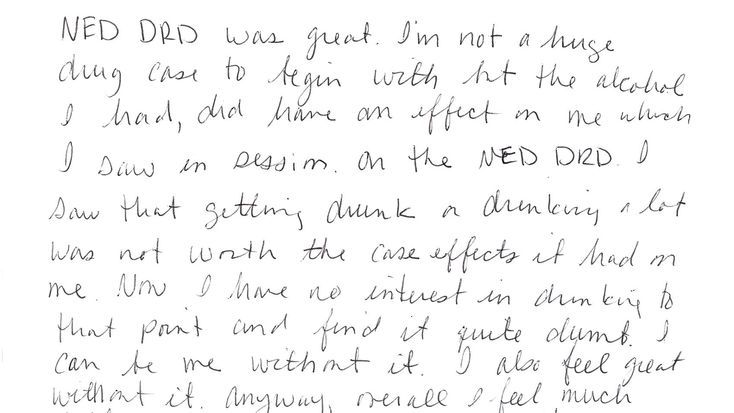 NED DRD was great. I'm not a huge
drug case to begin with bt the alcohol
I had, did have an effect on me which
I saw in session. On the NED DRD. I
saw that getting drunk or drinking a lot
was not worth the case effects it had on
me. Now I have no interest in drinking to
that point and find it quite dumb. I
can be me without it. I also feel great
without it. Anyway, overall I feel much